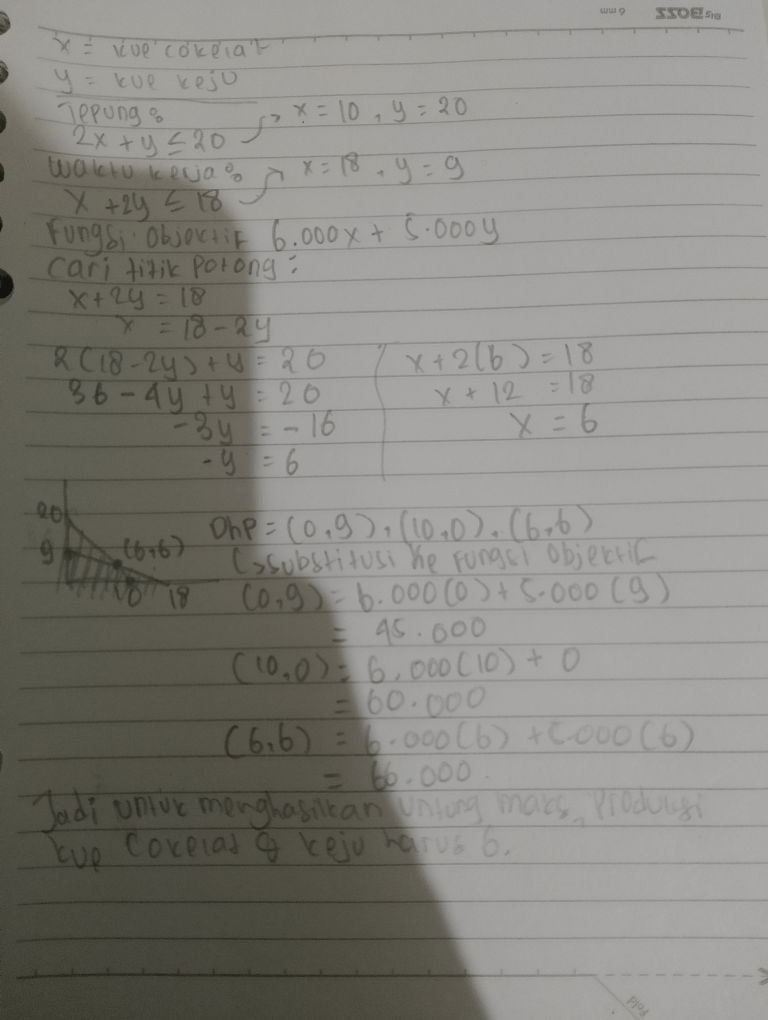 6 mm Big BOSS
x = kue cokelat
y = kue keju
Tepung :
2x + y ≤ 20 → x = 10, y = 20
Waktu kerja :
x + 2y ≤ 18 → x = 18, y = 9
Fungsi Objektif 6.000x + 5.000y
Cari titik potong :
x + 2y = 18
x = 18 - 2y
2(18 - 2y) + y = 20
36 - 4y + y = 20
-3y = -16
-y = 6
x + 2(6) = 18
x + 12 = 18
x = 6
20
9
(6,6)
10 18
DhP = (0,9), (10,0), (6,6)
↳ substitusi ke fungsi objektif
(0,9) = 6.000(0) + 5.000(9)
= 45.000
(10,0) = 6.000(10) + 0
= 60.000
(6,6) = 6.000(6) + 5.000(6)
= 66.000
Jadi untuk menghasilkan untung maks, produksi
kue cokelat & keju harus 6.
Fold